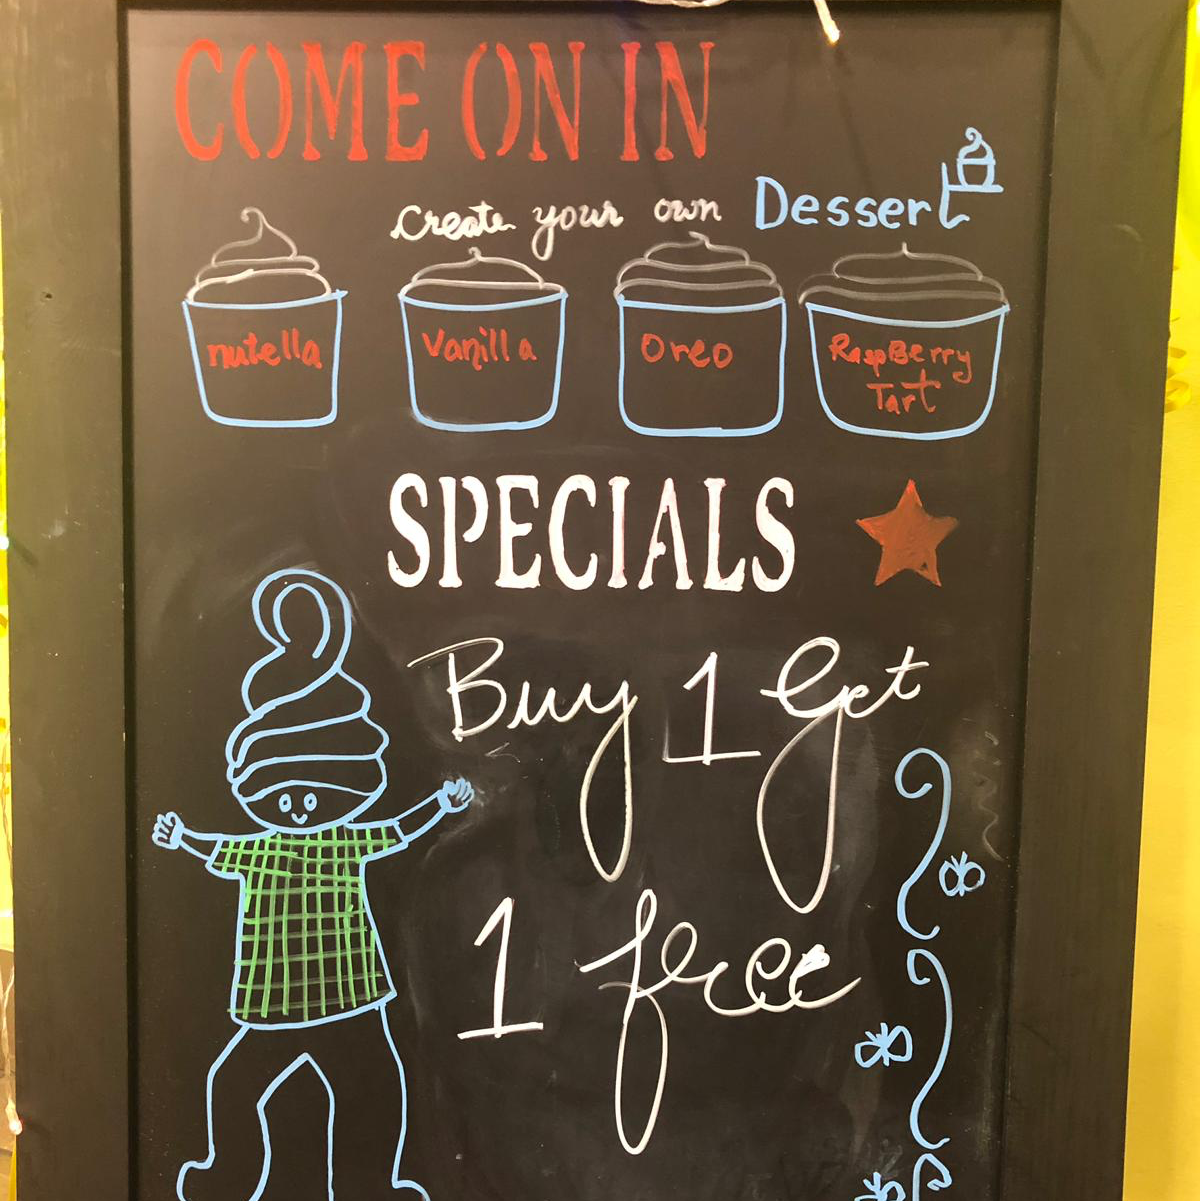 COME ON IN
Create your own Dessert
nutella
Vanilla
Oreo
RaspBerry
Tart
SPECIALS
Buy 1 Get
1 free